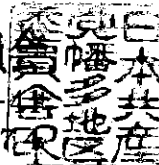 日本共産
党幡多地区
委員会印